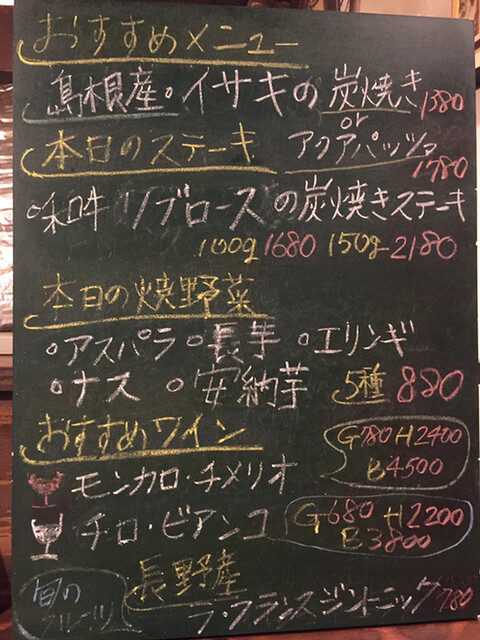 おすすめメニュー
島根産。イサキの炭焼き 1380
or
アクアパッツァ 1780
本日のステーキ
和牛リブロースの炭焼きステーキ
100g 1680 150g 2180
本日の焼野菜
アスパラ 長芋 エリンギ
ナス 安納芋 5種 880
おすすめワイン
モンカロ・チメリオ G780 H2400 B4500
チロ・ビアンコ G680 H2200 B3800
長野産
旬のフルーツ ラ・フランスジントニック 780